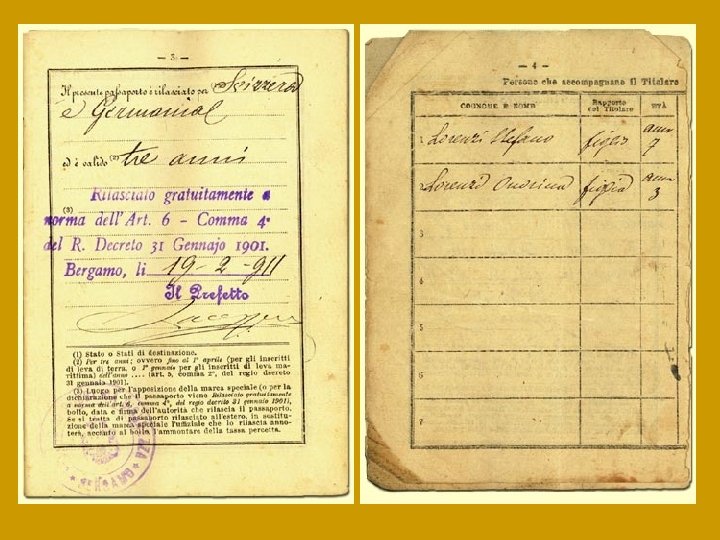 — 3 —
Il presente passaporto è rilasciato per Svizzera
e Germania
ed è valido (2) tre anni
Rilasciato gratuitamente a
(3)
norma dell'Art. 6 - Comma 4°
del R. Decreto 31 Gennajo 1901.
Bergamo, li 19-2-911
Il Prefetto
(1) Stato o Stati di destinazione.
(2) Per tre anni; ovvero fino al 1° aprile (per gli inscritti
di leva di terra, o 1° gennaio per gli inscritti di leva ma-
rittima) dell'anno .... (art. 5, comma 2°, del regio decreto
31 gennaio 1901).
(3) Luogo per l'apposizione della marca speciale (o per la
dichiarazione che il passaporto viene Rilasciato gratuitamente
a norma dell'art. 6, comma 4°, del regio decreto 31 gennaio 1901),
bollo, data e firma dell'autorità che rilascia il passaporto.
Se si tratta di passaporto rilasciato all'estero, in sostitu-
zione della marca speciale l'uffiziale che lo rilascia anno-
terà, accanto al bollo l'ammontare della tassa percetta.
BERGAMO
— 4 —
Persone che accompagnano il Titolare
COGNOME E NOME
Rapporto
col Titolare
ETÀ
1 Lorenzi Stefano figlio anni 7
2 Lorenzi Onorina figlia anni 3
3
4
5
6
7